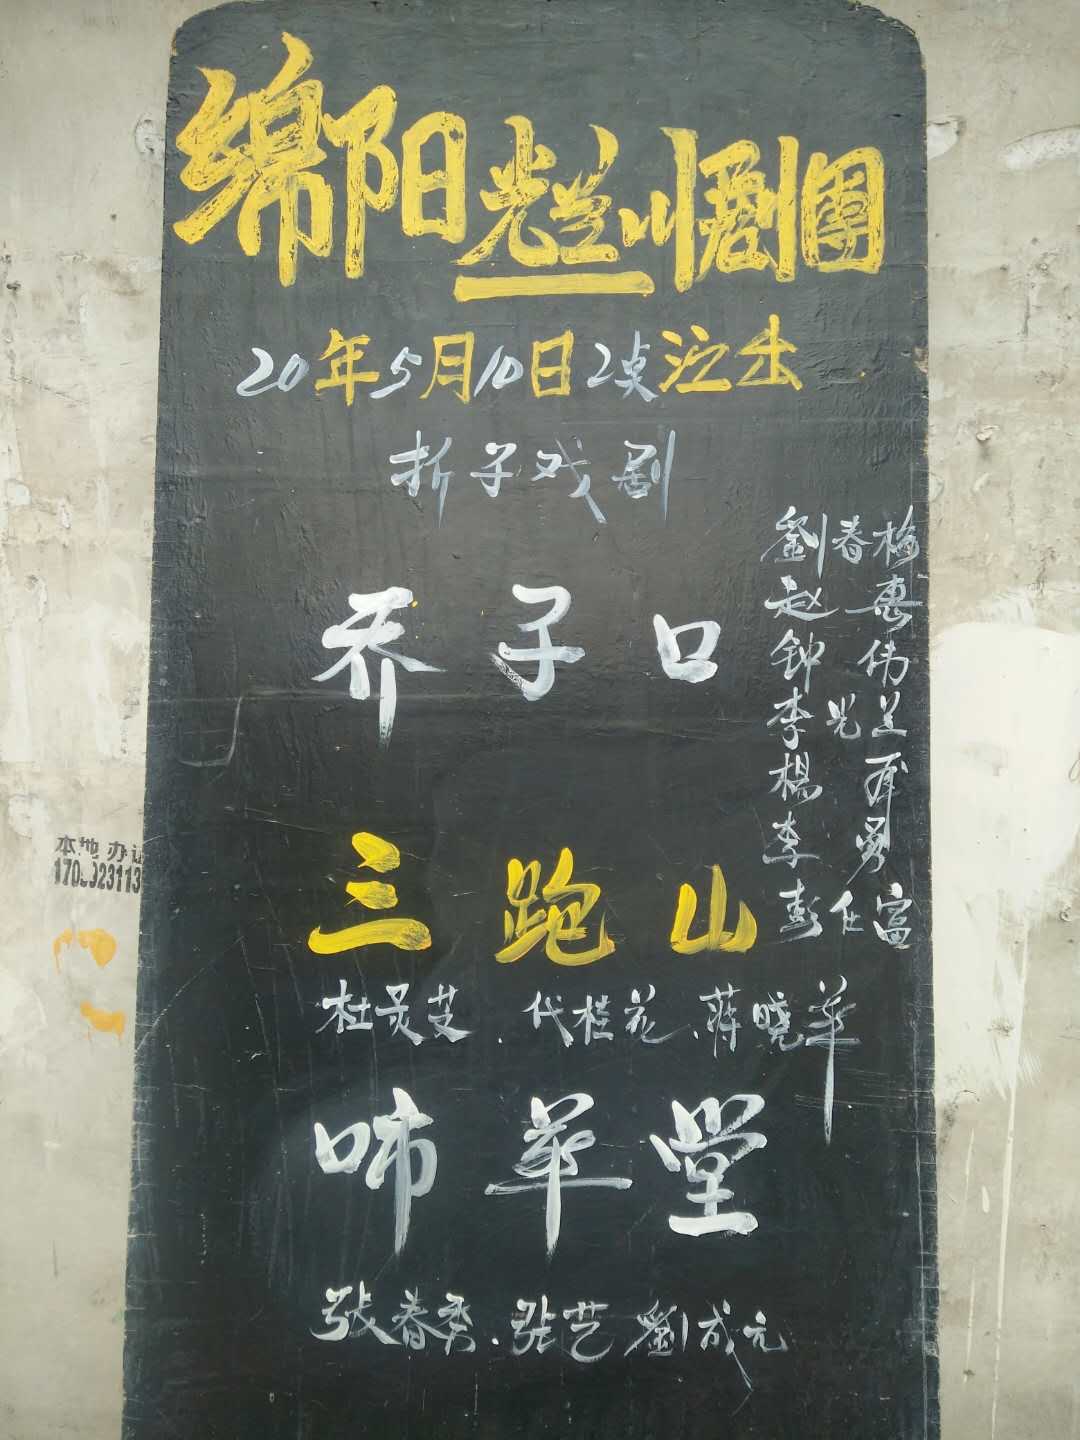 绵阳光兰川剧團
20年5月10日2点演出
折子戏剧
乔子口
劉春梅
赵惠
钟伟
李光兰
杨军
李勇
彭仕富
三跑山
杜灵芝、代桂花、蒋晓华
啼华堂
张春秀、张艺 劉成元
本地办证